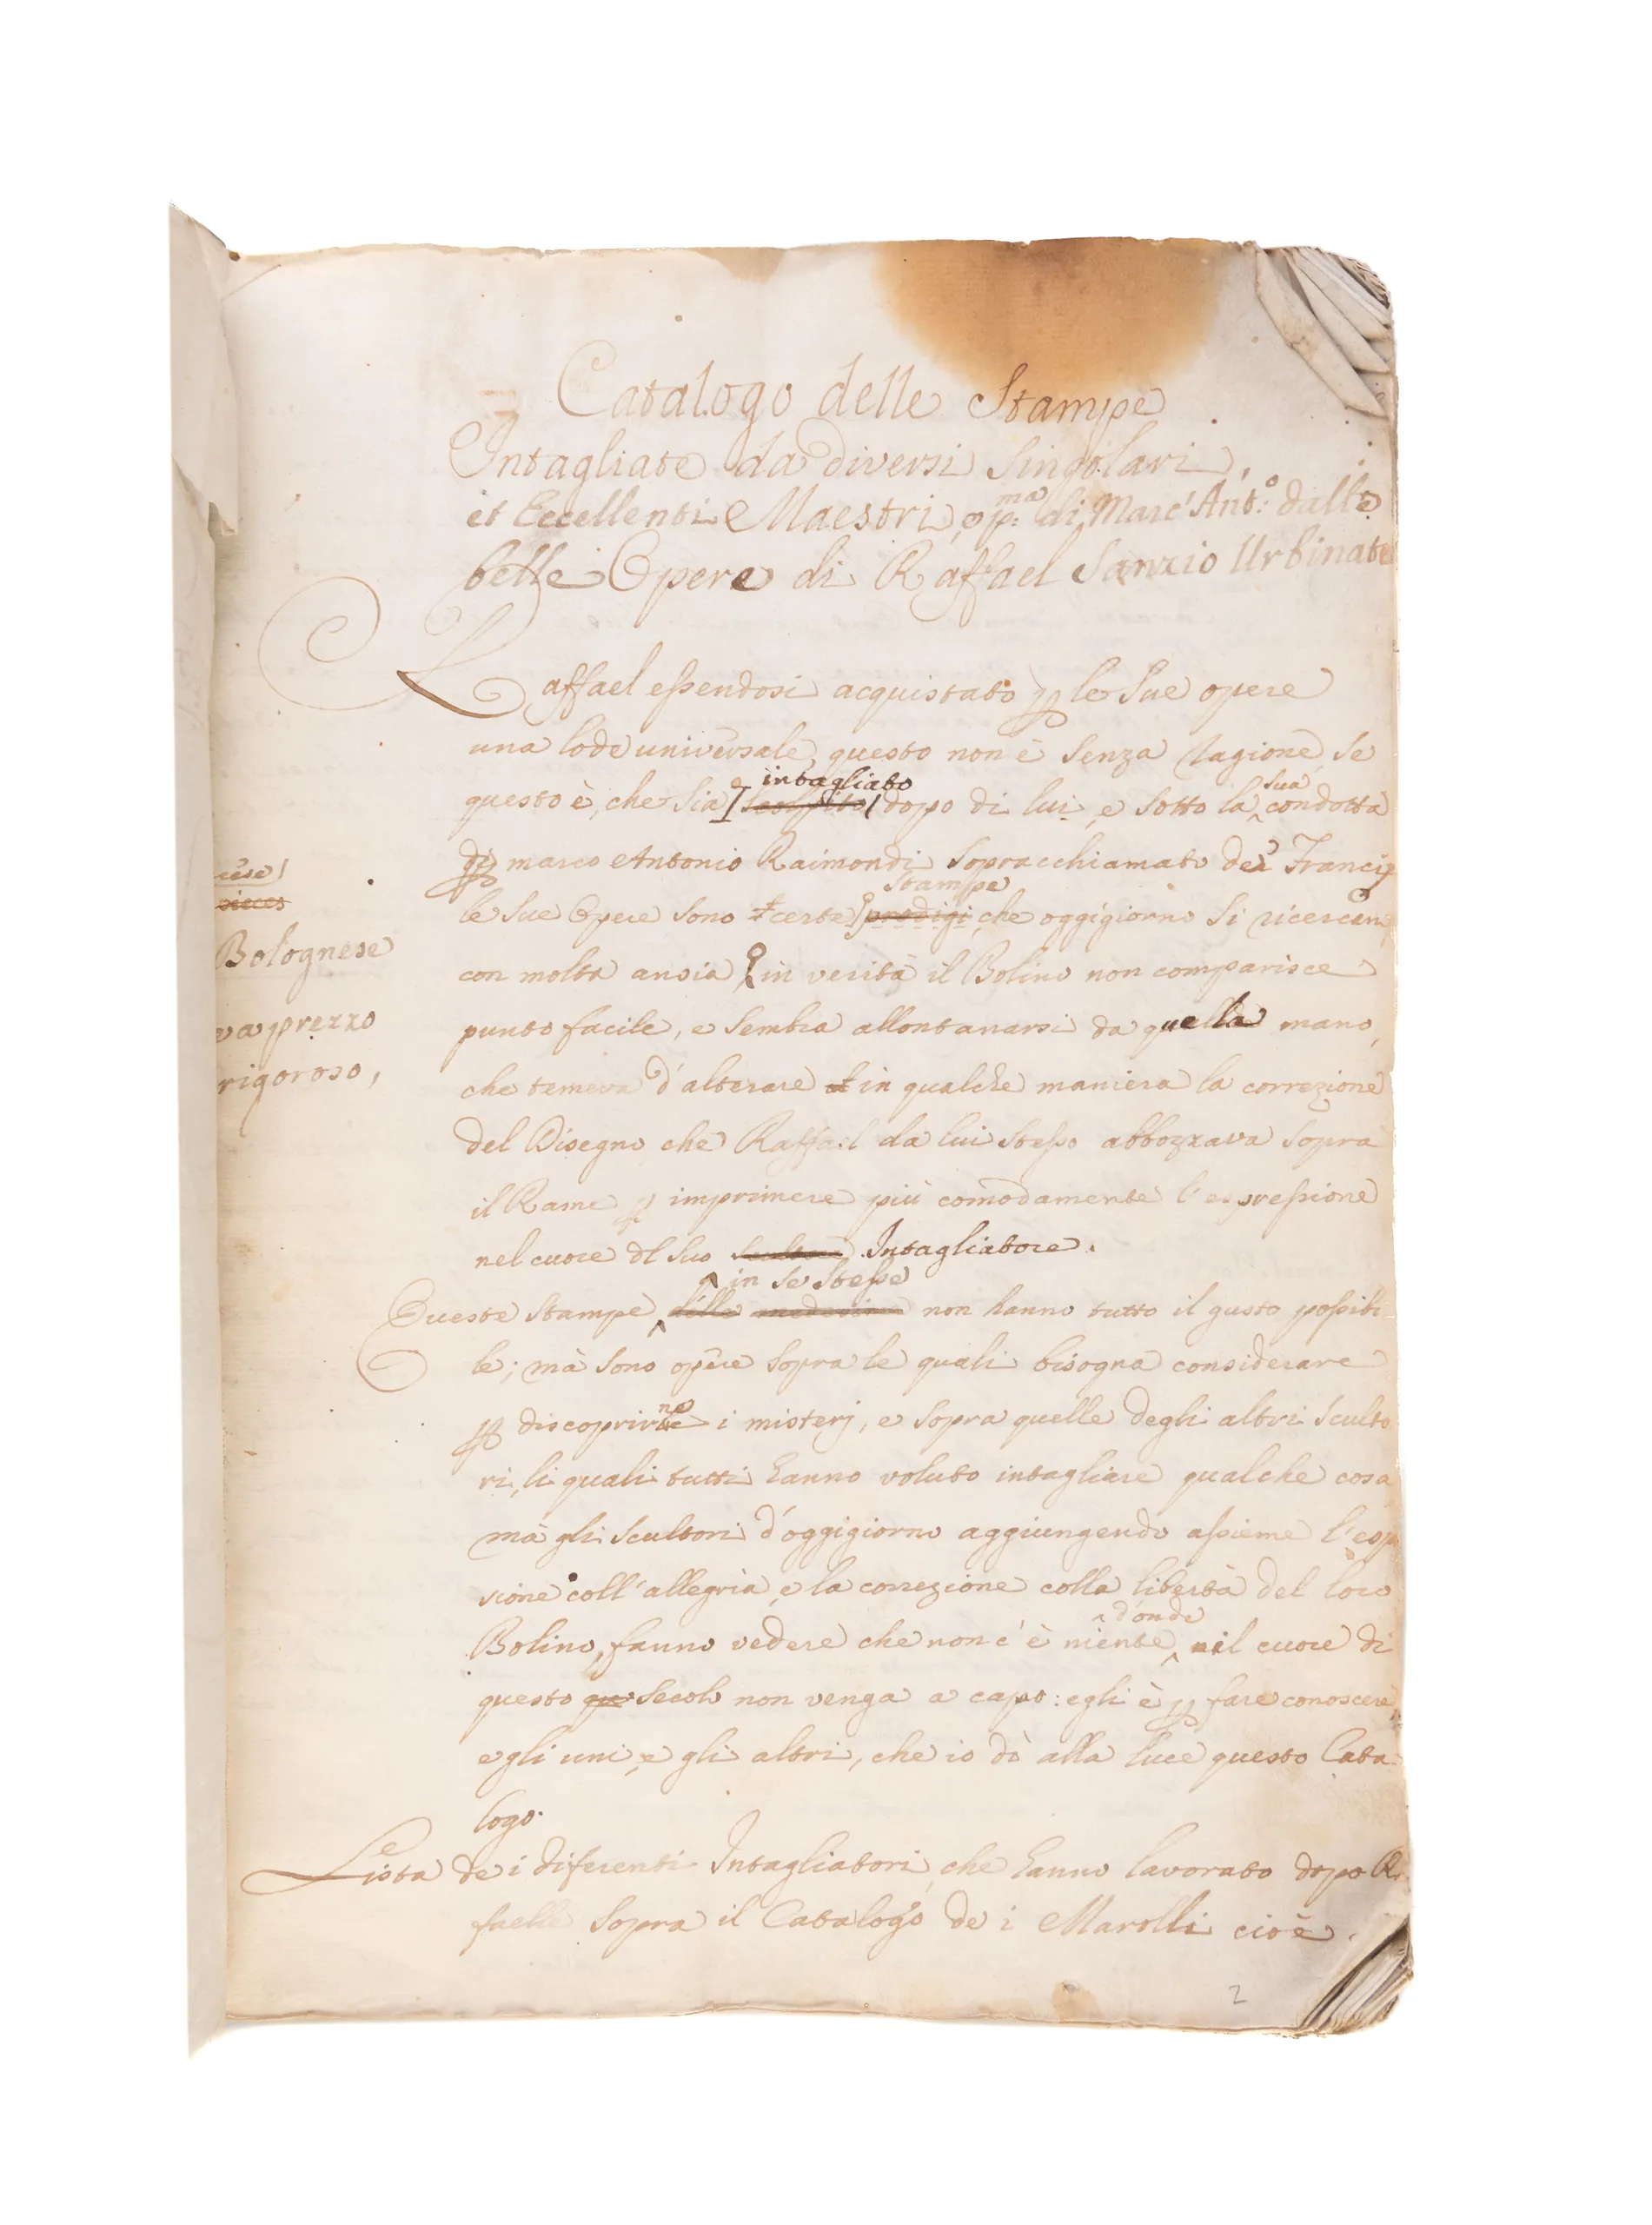 Catalogo delle Stampe
Intagliate da diversi Singolari,
et Eccellenti Maestri, e p:ma di Marc'Ant:o dalle
belle Opere di Raffael Sanzio Urbinate
Raffael essendosi acquistato p le Sue opere
una lode universale, questo non è Senza ragione, se
intagliato sua
questo è, che Sia scolpito dopo di lui, e Sotto la condotta
di marco Antonio Raimondi Sopracchiamato de Franci
Stampe
le Sue Opere Sono certe prodigi che oggigiorno Si ricercan
con molta ansia in verità il Bolino non comparisce
punto facile, e Sembra allontanarsi da quella mano,
che temeva d'alterare in qualche maniera la correzione
del Disegno che Raffael da lui stesso abbozzava Sopra
il Rame p imprimere più comodamente l'espressione
nel cuore dl Suo Intagliatore.
in se Stesse
Queste Stampe non hanno tutto il gusto possibi
le; mà Sono opere Sopra le quali bisogna considerare
ne
p discoprir i misterj, e Sopra quelle degli altri Sculto
ri, li quali tutti hanno voluto intagliare qualche cosa
mà gli Scultori d'oggigiorno aggiungendo assieme l'esp
sione coll'allegria, e la correzione colla libertà del loro
d'onde
Bolino, fanno vedere che non c'è niente, il cuore di
questo que Secolo non venga a capo: egli è p fare conoscere
e gli uni, e gli altri, che io dò alla luce questo Cata
logo.
Lista de i diferenti Intagliatori, che hanno lavorato dopo Ra
faelle Sopra il Catalogo de i Marolli cioè.
cese
Bolognese
va prezzo
rigoroso,
2